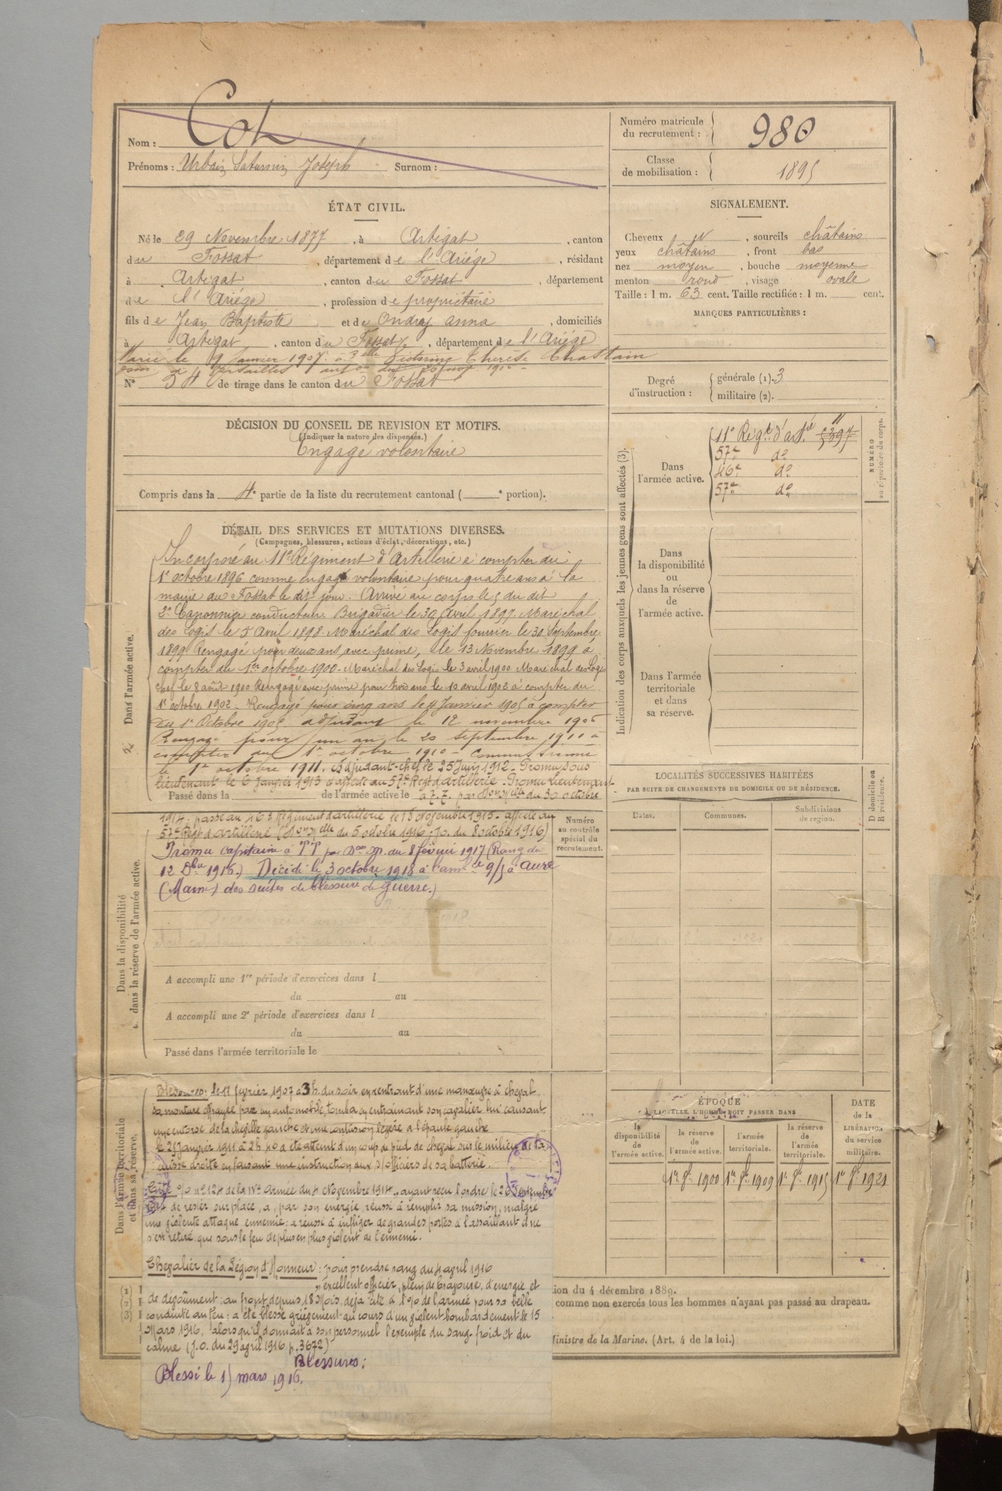 Nom : Cot
Prénoms : Urbain Saturnin Joseph Surnom :
Numéro matricule du recrutement : 980
Classe de mobilisation : 1895
ÉTAT CIVIL.
Né le 29 Novembre 1877, à Artigat, canton
du Fossat, département de l'Ariège, résidant
à Artigat, canton du Fossat, département
de l'Ariège, profession de propriétaire
fils de Jean Baptiste et de Ondraj anna, domiciliés
à Artigat, canton du Fossat, département de l'Ariège
Marié le janvier 1907 à Thérèse Chastain
N° 34 de tirage dans le canton du Fossat
SIGNALEMENT.
Cheveux sourcils châtains
yeux châtains, front bas
nez moyen, bouche moyenne
menton rond, visage ovale
Taille : 1 m. 63 cent. Taille rectifiée : 1 m. cent.
MARQUES PARTICULIÈRES :
Degré d'instruction : générale (1). 3
militaire (2).
DÉCISION DU CONSEIL DE REVISION ET MOTIFS.
(Indiquer la nature des dispenses.)
Engagé volontaire
Compris dans la 4e partie de la liste du recrutement cantonal ( e portion).
Indication des corps auxquels les jeunes gens sont affectés (3).
Dans l'armée active.
11e Régt d'artie
57e do
46e do
57e do
NUMÉRO au répertoire du corps.
Dans la disponibilité ou dans la réserve de l'armée active.
Dans l'armée territoriale et dans sa réserve.
DÉTAIL DES SERVICES ET MUTATIONS DIVERSES.
(Campagnes, blessures, actions d'éclat, décorations, etc.)
Dans l'armée active.
Incorporé au 11e Régiment d'Artillerie à compter du
1er octobre 1896 comme engagé volontaire pour quatre ans à la
mairie du Fossat le dit jour. Arrivé au corps le 5 du dit
2e Canonnier conducteur Brigadier le 30 Avril 1897. Maréchal
des logis le 5 Avril 1898. Maréchal des logis fourrier le 30 Septembre
1899. Rengagé pour deux ans, avec prime, le 13 Novembre 1899 à
compter du 1er octobre 1900. Maréchal des Logis le 3 avril 1900 Maréchal des Logis
chef le 8 août 1900 Rengagé avec prime pour trois ans le 10 avril 1902 à compter du
1er octobre 1902. Rengagé pour cinq ans le janvier 1905 à compter
du 1er Octobre 1905 adjudant le 12 novembre 1905
Rengagé pour un an le 20 septembre 1910 à
compter du 1er octobre 1910 - Commissionné
le 1er octobre 1911. Adjudant-chef le 25 Juin 1912. Promu sous
lieutenant le 6 Janvier 1913 d'affecté au 57e Regt d'artillerie. Promu lieutenant
Passé dans la de l'armée active le à T.T. par du 30 octobre
1914. passé au 46e Régiment d'artillerie le 13 Novembre 1915. affecté au
57e Regt d'artillerie du 5 octobre 1916 J.O. du 8 octobre 1916)
Promu capitaine à T.T par Don M. du 8 février 1917 (Rang du
12 Dbre 1916.) Décédé le 3 octobre 1918 à l'ambce 9/5 à Auve
(Marne) des suites de blessure de Guerre.)
Dans la disponibilité et dans la réserve de l'armée active.
A accompli une 1re période d'exercices dans l
du au
A accompli une 2e période d'exercices dans l
du au
Passé dans l'armée territoriale le
Numéro au contrôle spécial du recrutement.
LOCALITÉS SUCCESSIVES HABITÉES
PAR SUITE DE CHANGEMENTS DE DOMICILE OU DE RÉSIDENCE.
Dates. Communes. Subdivisions de région.
D domicile ou R résidence.
Dans l'armée territoriale et dans sa réserve.
Blessures : le 17 février 1907 à 3h. du soir en rentrant d'une manœuvre à cheval
sa monture effrayée par un automobile tomba en entrainant son cavalier lui causant
une entorse de la cheville gauche et une contusion légère à l'épaule gauche
le 25 janvier 1911 à 2h 40 a été atteint d'un coup de pied de cheval sur le milieu de la
cuisse droite en faisant une instruction aux s/officiers de sa batterie.
o/o no 124 de la IVe Armée du 4 Novembre 1914, ayant reçu l'ordre le 26 Septembre
de rester sur place, a, par son énergie, réussi à remplir sa mission, malgré
une violente attaque ennemie; a réussi à infliger de grandes pertes à l'assaillant et ne
s'est retiré que sous le feu de plus en plus violent de l'ennemi.
Chevalier de la Légion d'Honneur : pour prendre rang du 4 avril 1916
"excellent officier, plein de bravoure, d'énergie et
de dévouement; au front depuis 18 Mois. déjà cité à l'o/o de l'armée pour sa belle
conduite au feu; a été blessé grièvement au cours d'un violent bombardement le 15
Mars 1916, alors qu'il donnait à son personnel l'exemple du sang-froid et du
calme (J.O. du 29 avril 1916 p. 3672)
Blessures :
Blessé le 15 mars 1916.
ÉPOQUE
À LAQUELLE L'HOMME DOIT PASSER DANS
la disponibilité de l'armée active. la réserve de l'armée active. l'armée territoriale. la réserve de l'armée territoriale.
DATE de la LIBÉRATION du service militaire.
1er 9bre 1900 1er 9bre 1909 1er 9bre 1915 1er 9bre 1921
ion du 4 décembre 1889.
comme non exercés tous les hommes n'ayant pas passé au drapeau.
Ministre de la Marine. (Art. 4 de la loi.)